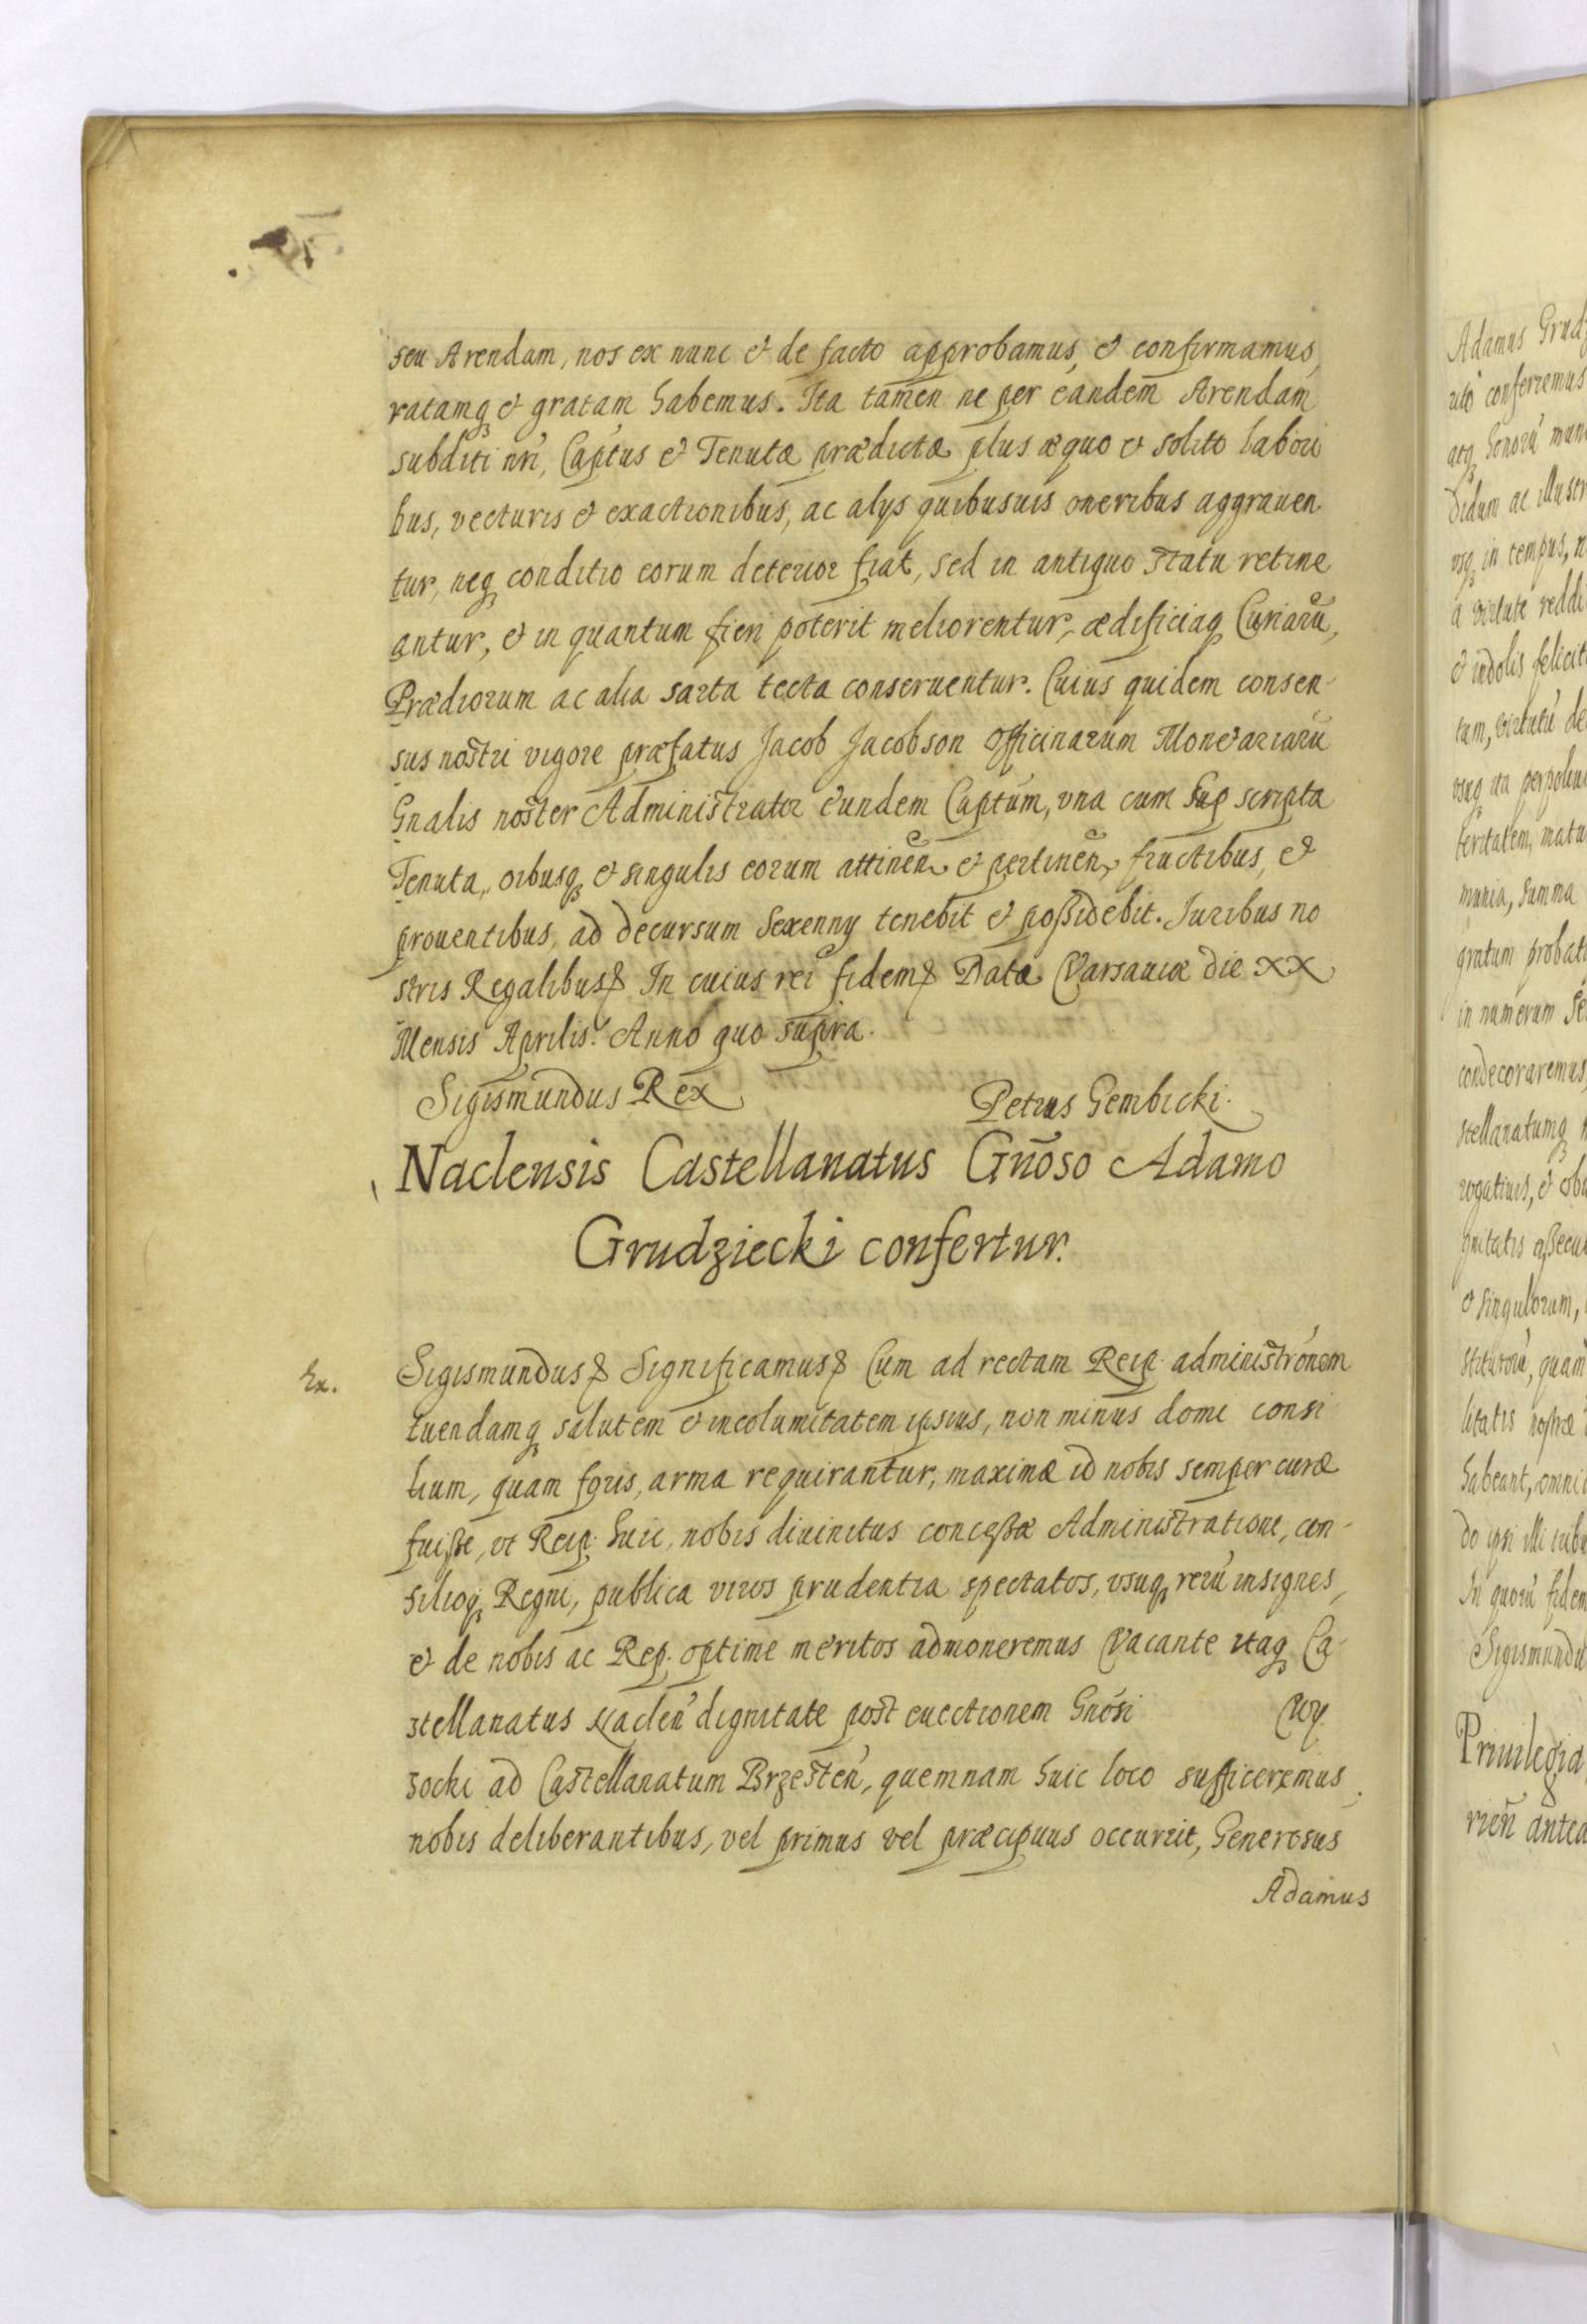 seu Arendam, nos ex nunc & de facto approbamus, & confirmamus,
ratamq & gratam habemus. Ita tamen ne per eandem Arendam
subditi nri, Captus & Tenutæ prædictæ plus æquo & solito labori
bus, vecturis & exactionibus, ac alys quibusuis oneribus aggrauen
tur, neq conditio eorum deterior fiat, sed in antiquo statu retine
antur, & in quantum fieri poterit meliorentur, ædificiaq Curiarū,
Prædiorum ac alia sarta tecta conseruentur. Cuius quidem consen-
sus nostri vigore præfatus Jacob Jacobson Officinarum Monetariarū
Gnalis noster Administrator eundem Captum, vna cum sup scripta
Tenuta, oibusq & singulis eorum attineñ & pertineñ, fructibus, &
prouentibus, ad decursum Sexenny tenebit & possidebit. Iuribus no
stris Regalibus& In cuius rei fidem& Datæ Varsauiæ die XX
Mensis Aprilis. Anno quo supra.
Sigismundus Rex Petrus Gembicki.
Naclensis Castellanatus Gñoso Adamo
Grudziecki confertur.
Ex. Sigismundus& Significamus& Cum ad rectam Reip. administrōnem
tuendamq salutem & incolumitatem ipsius, non minus domi consi
lium, quam foris, arma requirantur, maximæ id nobis semper curæ
fuisse, vt Reip. huic, nobis diuinitus concessæ Administratione, con-
silioq Regni, publica viros prudentia spectatos, vsuq rerū insignes,
& de nobis ac Rep. optime meritos admoneremus Vacante itaq Ca-
stellanatus Nacleñ dignitate post euectionem Gnōsi Wy
socki ad Castellanatum Brzesteñ, quemnam huic loco sufficeremus,
nobis deliberantibus, vel primus vel præcipuus occurrit, Generosus
Adamus
Adamus Grudz
rito conferremus
atq honorū mun
didum ac illustr
vsq in tempus, n
a virtute reddi
& indolis felicit
tam, virtutū de
vsuq ita perpoliui
teritatem, matu
munia, summa
gratum probat
in numerum Se
condecoraremus
stellanatumq
rogatiuis, & ob
gnitatis assecu
& singulorum,
stitutorū, quam
litatis nostræ
habeant, omni
do ipsi illi tub
In quorū fidem
Sigismundu
Priuilegia
rieñ antea